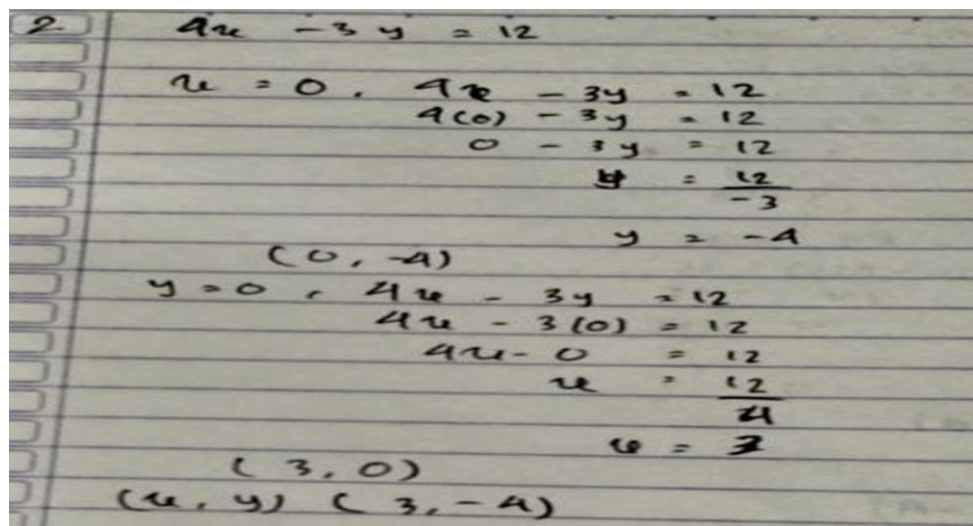 2 4x - 3y = 12
x = 0, 4x - 3y = 12
4(0) - 3y = 12
0 - 3y = 12
y = 12/-3
y = -4
(0, -4)
y = 0, 4x - 3y = 12
4x - 3(0) = 12
4x - 0 = 12
x = 12/4
x = 3
(3, 0)
(x, y) (3, -4)